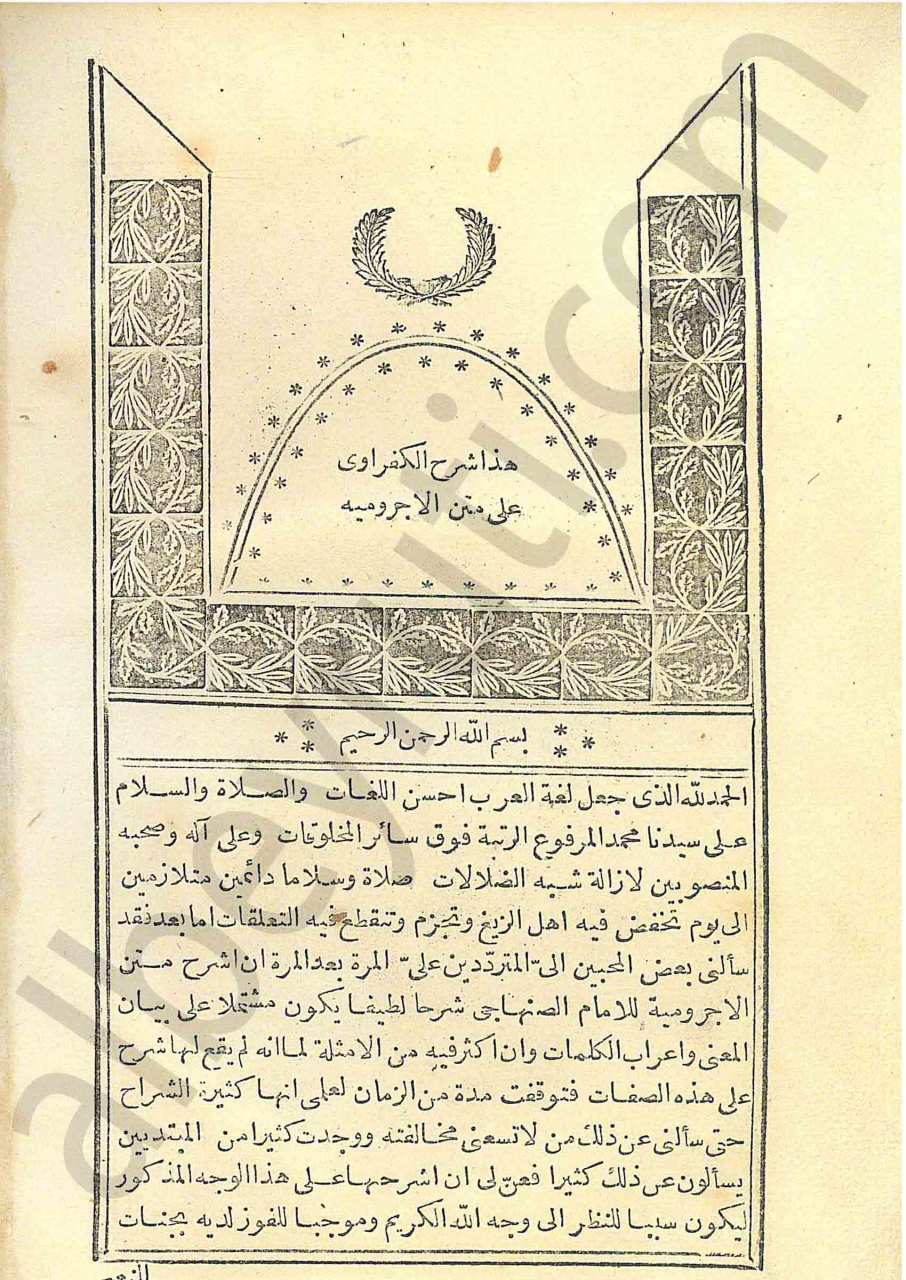 هذا شرح الكفراوى
على متن الاجروميه
بسم الله الرحمن الرحيم
الحمد لله الذى جعل لغة العرب احسن اللغات والصلاة والسلام
على سيدنا محمد المرفوع الرتبة فوق سائر المخلوقات وعلى آله وصحبه
المنصوبين لازالة شبه الضلالات صلاة وسلاما دائمين متلازمين
الى يوم تخفض فيه اهل الزيغ وتجزم وتنقطع فيه التعلقات اما بعد فقد
سألنى بعض المحبين الىّ المتردّدين علىّ المرة بعد المرة ان اشرح متن
الاجرومية للامام الصنهاجى شرحا لطيفا يكون مشتملا على بيان
المعنى واعراب الكلمات وان اكثر فيه من الامثلة لما انه لم يقع لها شرح
على هذه الصفات فتوقفت مدة من الزمان لعلمى انها كثيرة الشراح
حتى سألنى عن ذلك من لا تسعنى مخالفته ووجدت كثيرا من المبتديين
يسألون عن ذلك كثيرا فعنّ لى ان اشرحها على هذا الوجه المذكور
ليكون سببا للنظر الى وجه الله الكريم وموجبا للفوز لديه بجنات
alboeyruti.com